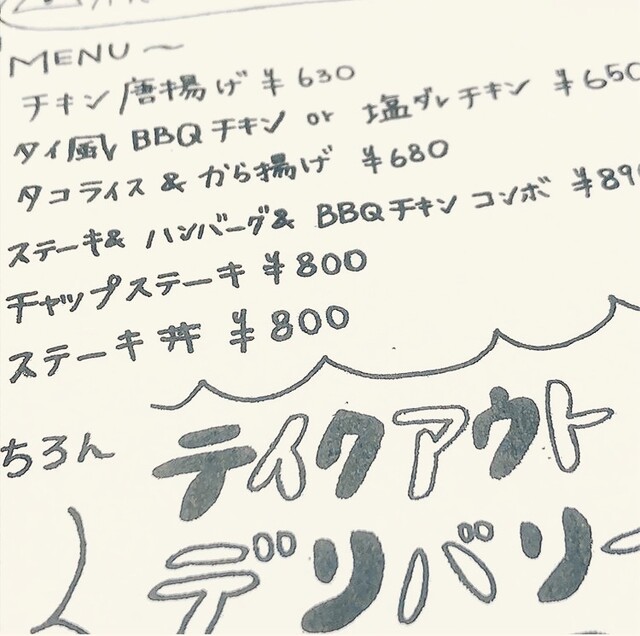 MENU～
チキン唐揚げ ¥630
タイ風 BBQチキン or 塩ダレチキン ¥650
タコライス & から揚げ ¥680
ステーキ& ハンバーグ& BBQチキン コンボ ¥89
チャップステーキ ¥800
ステーキ丼 ¥800
ちろん テイクアウト
デリバリー